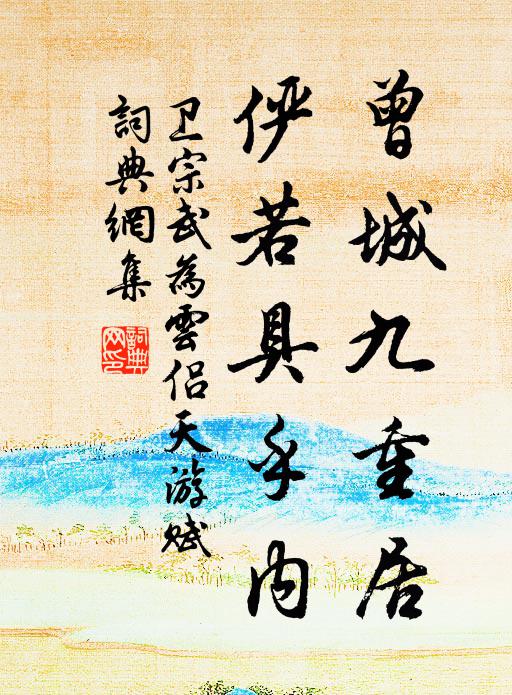 曾城九重居
俨若具乎内
卫宗武为雲侣天游赋
詞典網集
詞典網印